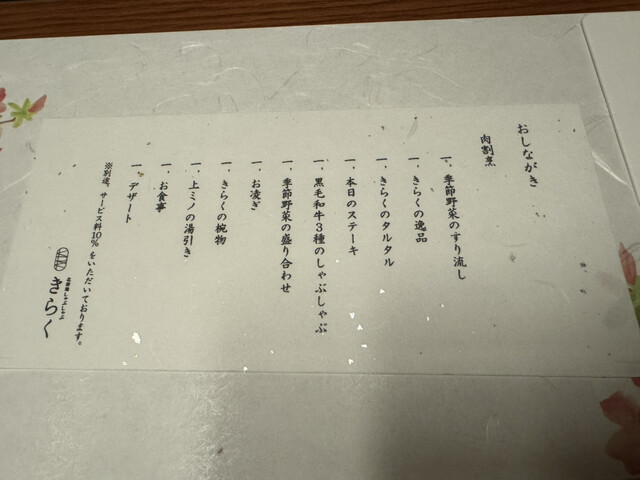 おしながき
肉割烹
一、季節野菜のすり流し
一、きらくの逸品
一、きらくのタルタル
一、本日のステーキ
一、黒毛和牛3種のしゃぶしゃぶ
一、季節野菜の盛り合わせ
一、お凌ぎ
一、きらくの椀物
一、上ミノの湯引き
一、お食事
一、デザート
※別途、サービス料10%をいただいております。
しゃぶしゃぶ
きらく